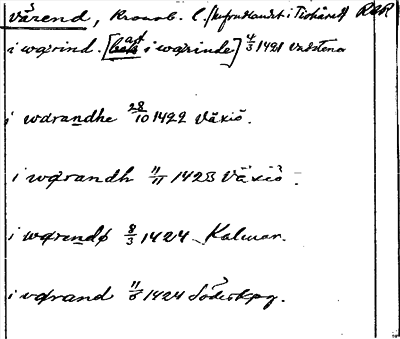 värend, Kronob. l. (hufvudlandet i Tiohärad) RAP
i wærind. [ i wærinde] 4/3 1421 Vadstena
i wdrandhe 28/10 1422 Växiö.
i wærandh 11/11 1423 Växiö.
i wærendø 8/3 1424 Kalmar.
i værand 11/6 1424 Söderkpg.